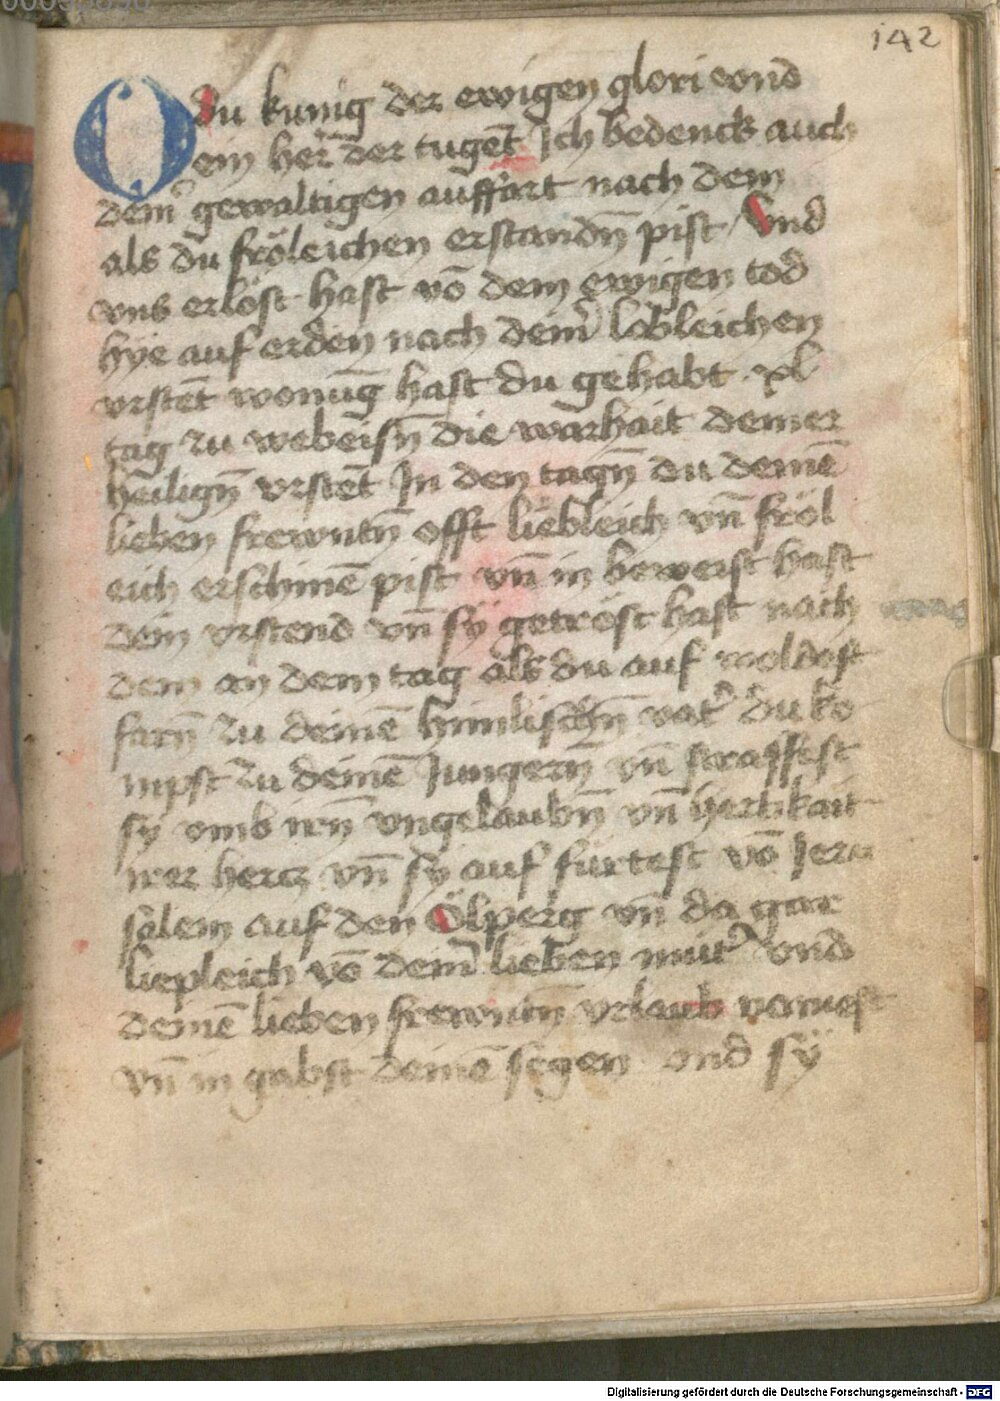 142
O du kunig der ewigen glori vnd
ein her der tugēt Ich bedenck auch
dein gewaltigen auffart nach dem
als du fröleichen erstandn̄ pist / Vnd
vns erlöst hast vō dem ewigen tod
hye auf erden nach deinͬ lobleichen
vrstēt wonūg hast du gehabt · xl
tag zu webeisn̄ die warhait deiner
heilign̄ vrstēt In den tagn̄ du deinē
lieben frewntn̄ offt liebleich vn̄ fröl
eich erschinē pist vn̄ in beweist hast
dein vrstend vn̄ sÿ getröst hast nach
dem an dem tag als du auf woldest
farn̄ zu deinē himlischn̄ vatͬ du ko
mpst zu deinē Jungern̄ vn̄ straffest
sÿ vmb irn̄ vngelaubn̄ vn̄ hertikait
irer hercz vn̄ sÿ auf fürtest vō Jeru
salem auf den Ölperg vn̄ da gar
liepleich vō deinͬ lieben mutͬ vnd
deinē lieben frewntn̄ vrlaub
vn̄ in gabst deinē segen vnd sÿ
Digitalisierung gefördert durch die Deutsche Forschungsgemeinschaft - DFG